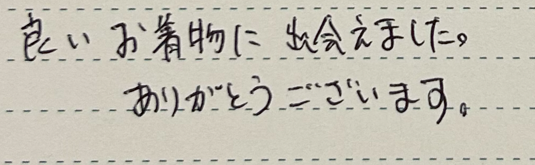 良いお着物に出会えました。
ありがとうございます。